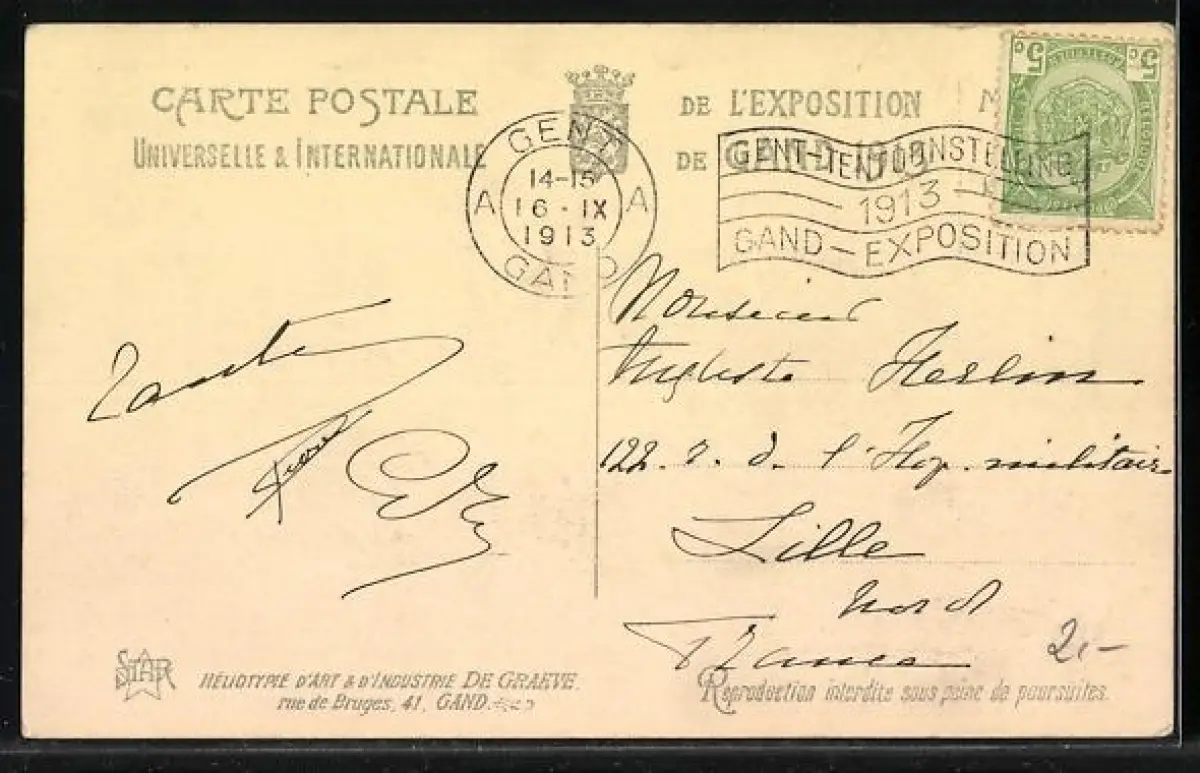 CARTE POSTALE DE L'EXPOSITION
UNIVERSELLE & INTERNATIONALE DE GAND 1913
5 c 5 c
GENT
A 14-15 A
16 - IX
1913
GAND
GENT-TENTOONSTELLING
1913
GAND-EXPOSITION
Monsieur
Auguste Herlin
122. r. d. l'Hop. militaire
Lille
Nord
France
2,-
STAR
HÉLIOTYPIE D'ART & D'INDUSTRIE DE GRAEVE.
rue de Bruges, 41, GAND.
Reproduction interdite sous peine de poursuites.